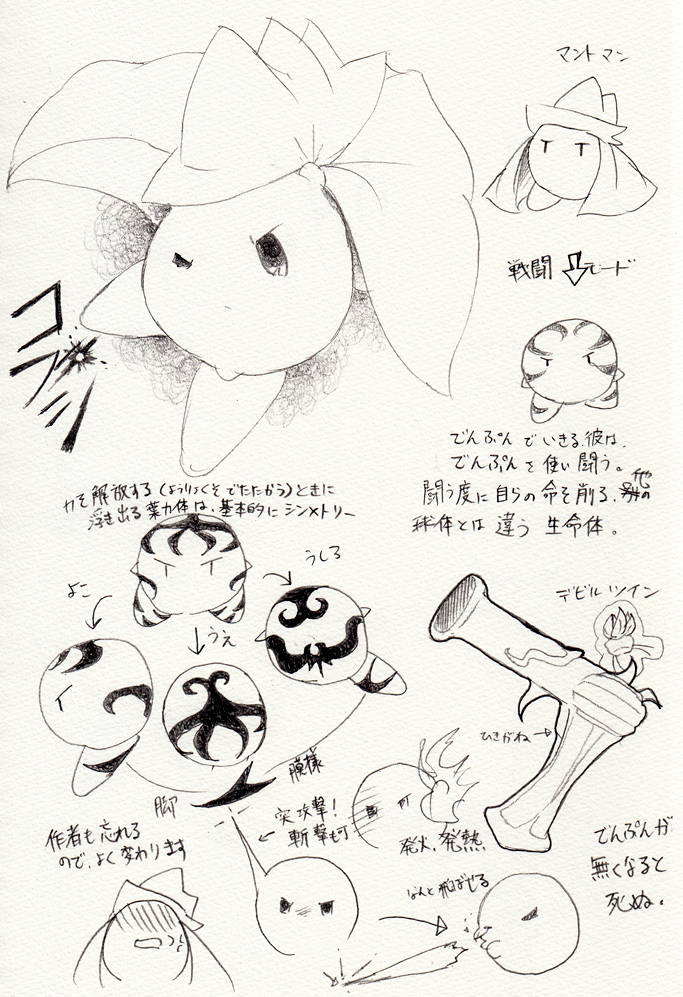 マントマン
戦闘モード
でんぷんでいきる彼は、
でんぷんを使い闘う。
闘う度に自らの命を削る、他の
球体とは違う生命体。
力を解放する(ようりょくそでたたかう)ときに
浮き出る葉力体は、基本的にシンメトリー
よこ
うえ
うしろ
模様
脚
作者も忘れる
ので、よく変わります
デビルツイン
ひきがね
突攻撃!
斬撃も可
発火、発熱
なんと飛ばせる
でんぷんが
無くなると
死ぬ。